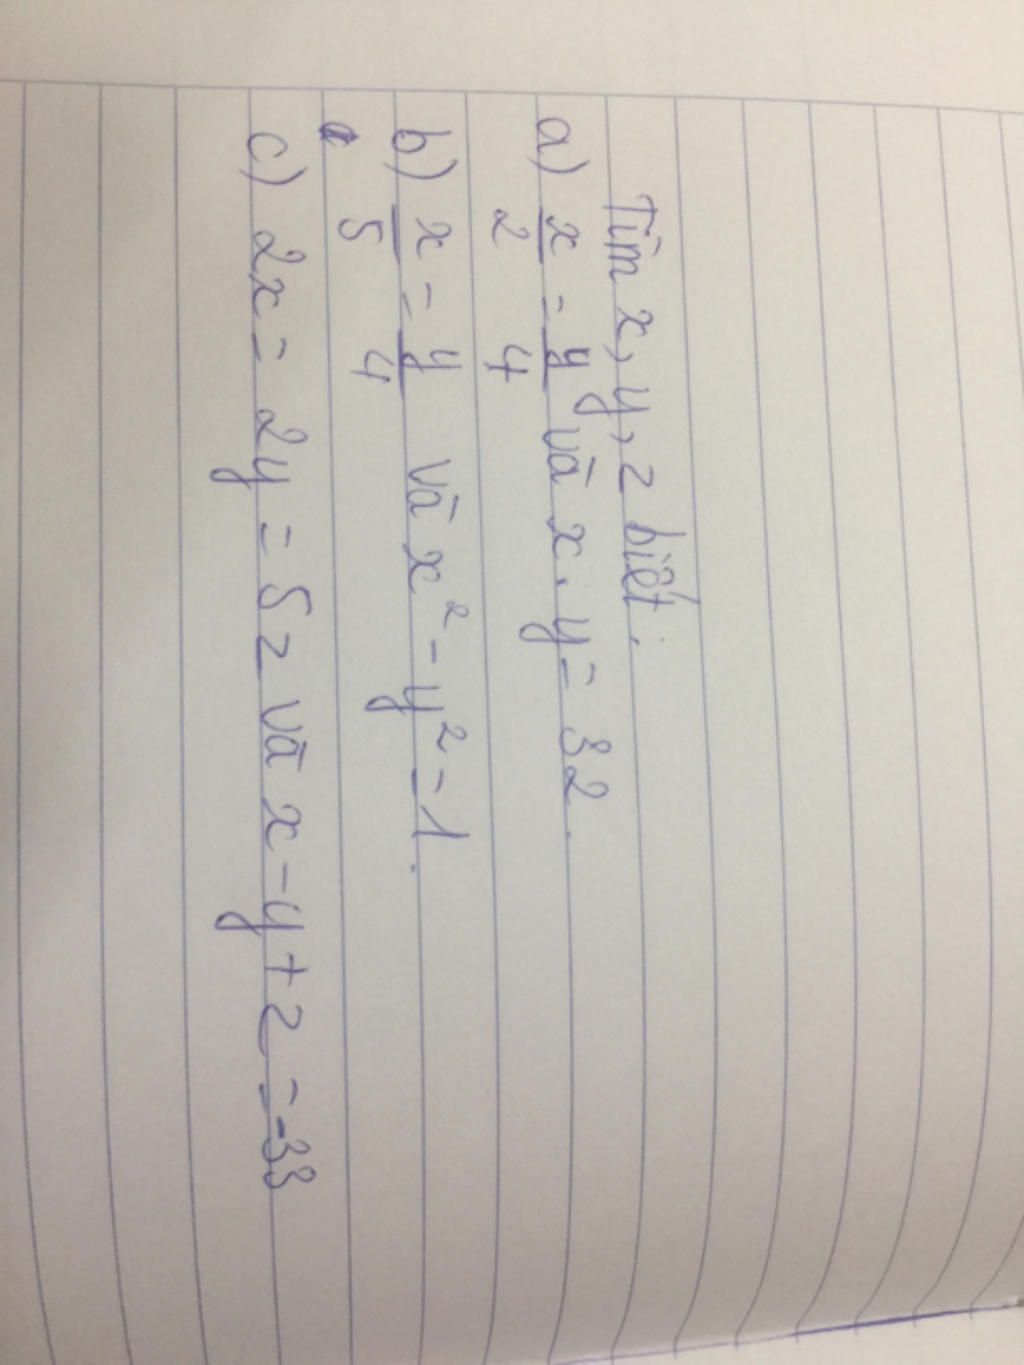 Tìm x, y, z biết:
a) x/2 = y/4 và x . y = 32.
b) x/5 = y/4 và x² - y² = 1.
c) 2x = 2y = 5z và x - y + z = -33